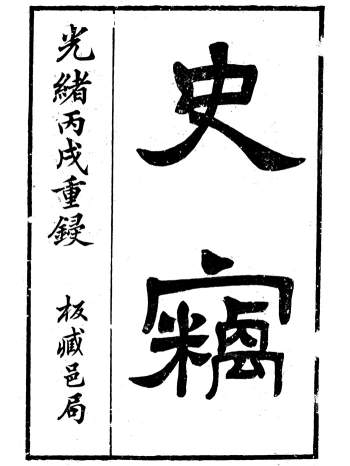 史竊
光緒丙戌重鋟
板臧邑局